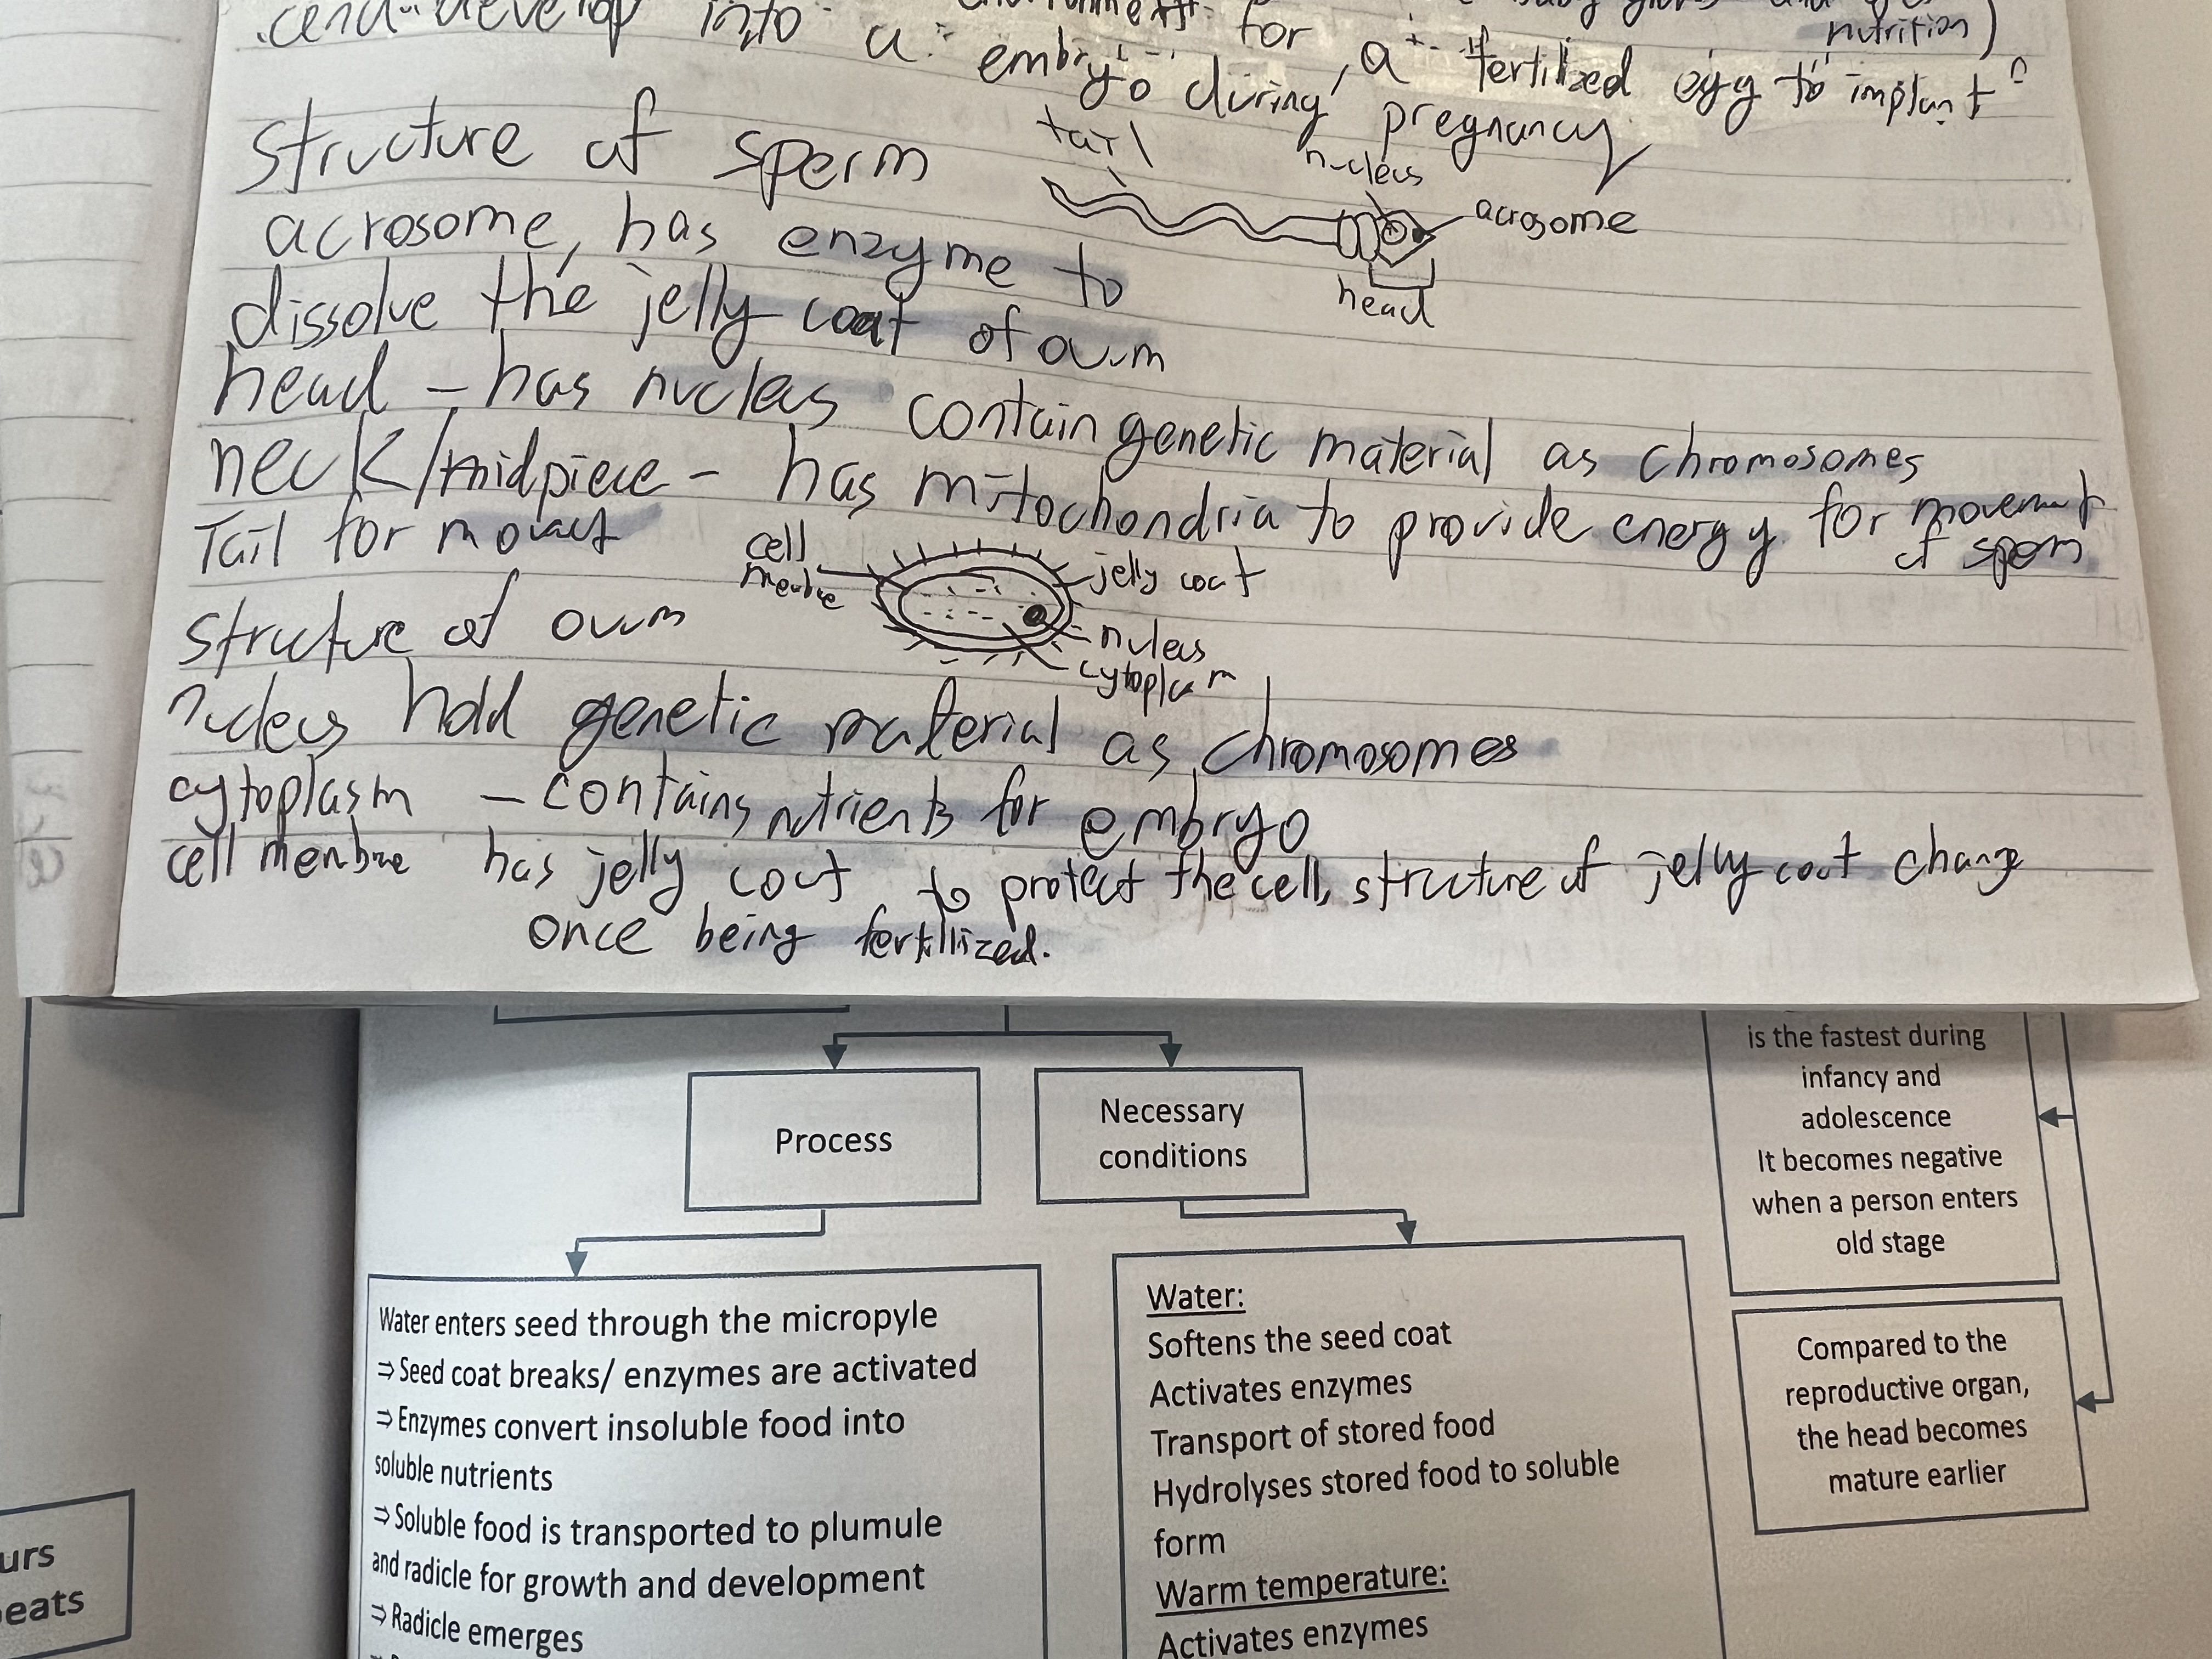 and develop into a embryo during pregnancy
for a fertilized egg to implant
nutrition)
structure of sperm
tail
nucleus
acrosome
head
acrosome, has enzyme to
dissolve the jelly coat of ovum
head - has nucleus contain genetic material as chromosomes
neck/midpiece - has mitochondria to provide energy for movement
of sperm
Tail for
structure of ovum
cell
jelly coat
cytoplasm
nucleus hold genetic material as chromosomes
cytoplasm - contains nutrients for embryo
cell has jelly coat to protect the cell, structure of jelly coat change
once being fertillized.
Process
Necessary
conditions
is the fastest during
infancy and
adolescence
It becomes negative
when a person enters
old stage
Water enters seed through the micropyle
⇒ Seed coat breaks/ enzymes are activated
⇒ Enzymes convert insoluble food into
soluble nutrients
⇒ Soluble food is transported to plumule
and radicle for growth and development
⇒ Radicle emerges
Water:
Softens the seed coat
Activates enzymes
Transport of stored food
Hydrolyses stored food to soluble
form
Warm temperature:
Activates enzymes
Compared to the
reproductive organ,
the head becomes
mature earlier
urs
eats